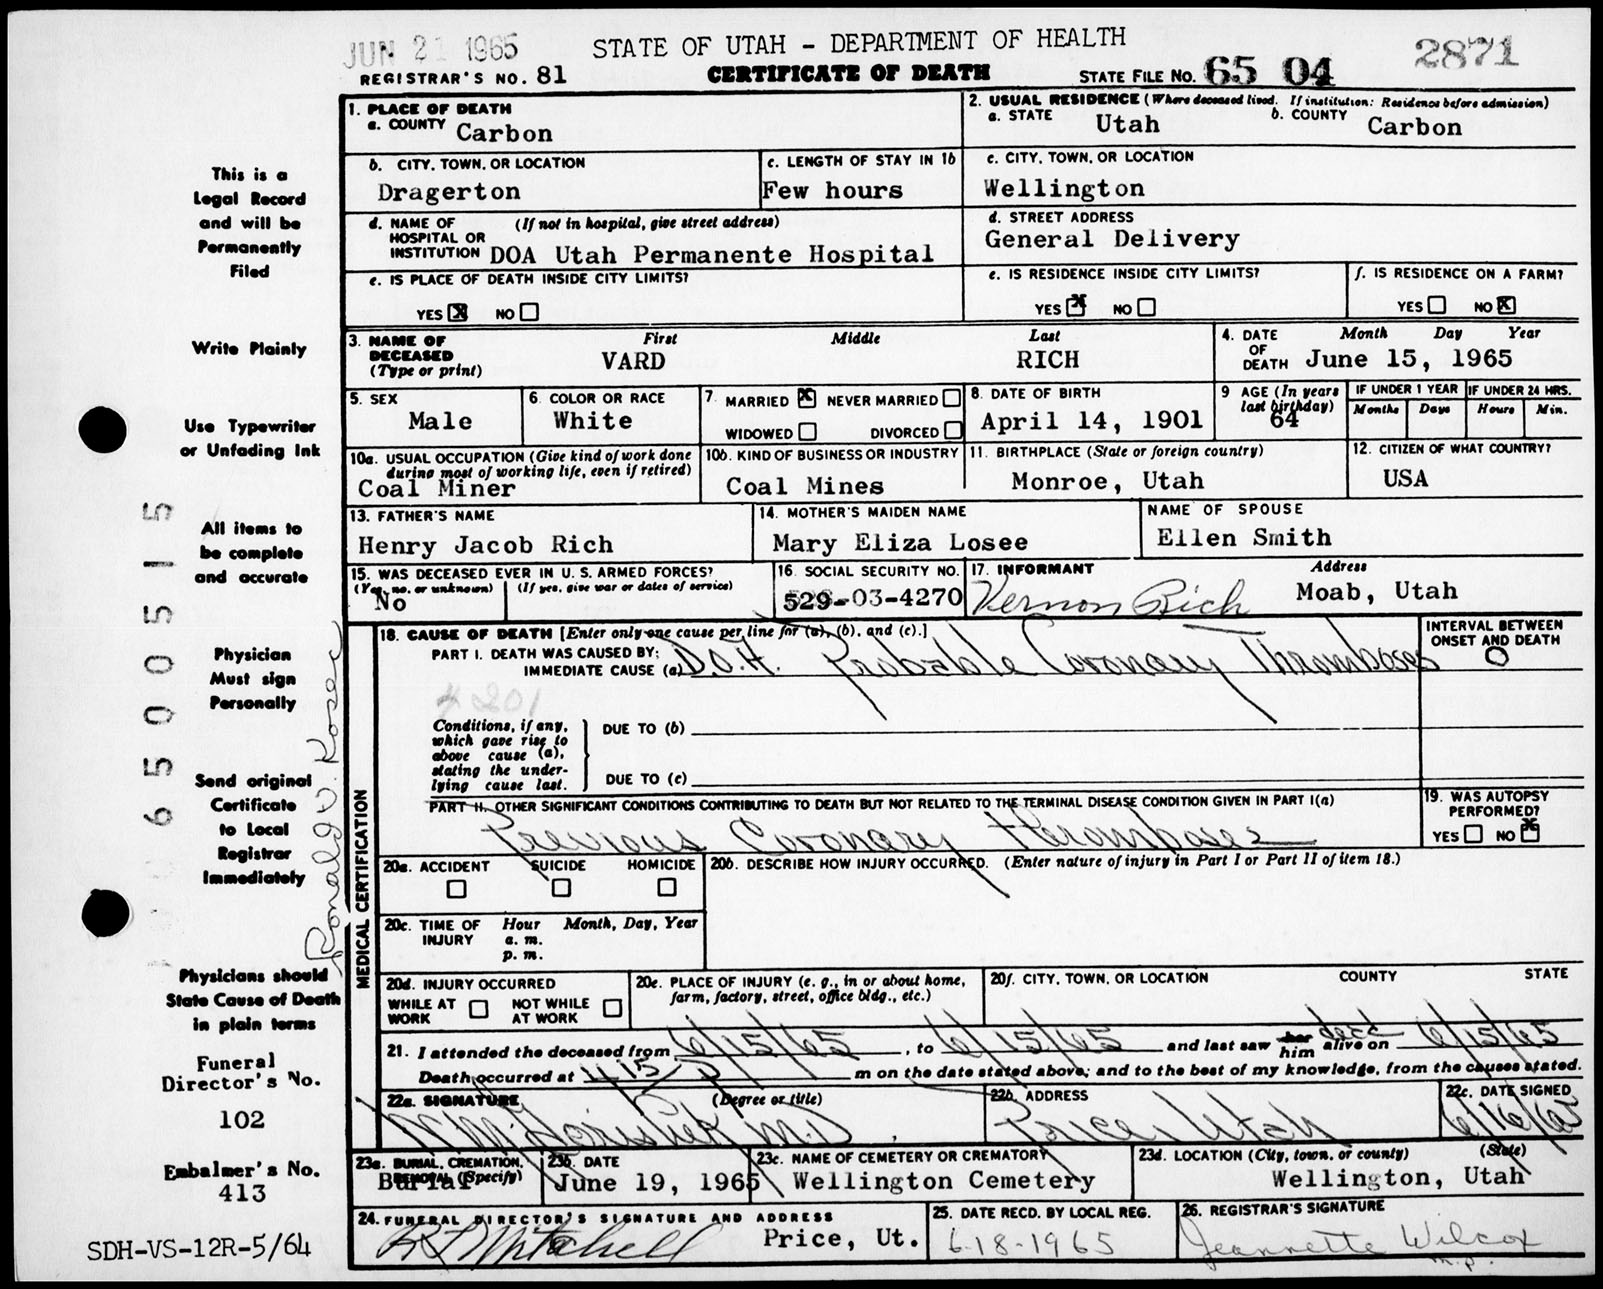 JUN 21 1965
STATE OF UTAH - DEPARTMENT OF HEALTH
2871
REGISTRAR'S NO. 81
CERTIFICATE OF DEATH
STATE FILE NO. 65 04
1. PLACE OF DEATH
a. COUNTY Carbon
2. USUAL RESIDENCE (Where deceased lived. If institution: Residence before admission)
a. STATE Utah b. COUNTY Carbon
b. CITY, TOWN, OR LOCATION
Dragerton
c. LENGTH OF STAY IN 1b
Few hours
c. CITY, TOWN, OR LOCATION
Wellington
d. NAME OF (If not in hospital, give street address)
HOSPITAL OR
INSTITUTION DOA Utah Permanente Hospital
d. STREET ADDRESS
General Delivery
e. IS PLACE OF DEATH INSIDE CITY LIMITS?
YES X NO
e. IS RESIDENCE INSIDE CITY LIMITS?
YES X NO
f. IS RESIDENCE ON A FARM?
YES NO X
3. NAME OF First Middle Last
DECEASED VARD RICH
(Type or print)
4. DATE Month Day Year
OF
DEATH June 15, 1965
5. SEX
Male
6. COLOR OR RACE
White
7. MARRIED X NEVER MARRIED
WIDOWED DIVORCED
8. DATE OF BIRTH
April 14, 1901
9 AGE (In years
last birthday)
64
IF UNDER 1 YEAR IF UNDER 24 HRS.
Months Days Hours Min.
10a. USUAL OCCUPATION (Give kind of work done
during most of working life, even if retired)
Coal Miner
10b. KIND OF BUSINESS OR INDUSTRY
Coal Mines
11. BIRTHPLACE (State or foreign country)
Monroe, Utah
12. CITIZEN OF WHAT COUNTRY?
USA
13. FATHER'S NAME
Henry Jacob Rich
14. MOTHER'S MAIDEN NAME
Mary Eliza Losee
NAME OF SPOUSE
Ellen Smith
15. WAS DECEASED EVER IN U. S. ARMED FORCES?
(Yes, no, or unknown) (If yes, give war or dates of service)
No
16. SOCIAL SECURITY NO.
529-03-4270
17. INFORMANT Address
Vernon Rich Moab, Utah
18. CAUSE OF DEATH [Enter only one cause per line for (a), (b), and (c).]
INTERVAL BETWEEN
ONSET AND DEATH
PART I. DEATH WAS CAUSED BY:
IMMEDIATE CAUSE (a) D.O.A. Probable Coronary Thromboses O
4201
Conditions, if any,
which gave rise to
above cause (a),
stating the under-
lying cause last.
DUE TO (b)
DUE TO (c)
PART II. OTHER SIGNIFICANT CONDITIONS CONTRIBUTING TO DEATH BUT NOT RELATED TO THE TERMINAL DISEASE CONDITION GIVEN IN PART I(a)
Previous Coronary thromboses
19. WAS AUTOPSY
PERFORMED?
YES NO X
20a. ACCIDENT SUICIDE HOMICIDE
20b. DESCRIBE HOW INJURY OCCURRED. (Enter nature of injury in Part I or Part II of item 18.)
20c. TIME OF Hour Month, Day, Year
INJURY a. m.
p. m.
20d. INJURY OCCURRED
WHILE AT WORK NOT WHILE AT WORK
20e. PLACE OF INJURY (e. g., in or about home,
farm, factory, street, office bldg., etc.)
20f. CITY, TOWN, OR LOCATION COUNTY STATE
21. I attended the deceased from 6/15/65, to 6/15/65 and last saw her him dead alive on 6/15/65
Death occurred at 415 P m on the date stated above; and to the best of my knowledge, from the causes stated.
22a. SIGNATURE (Degree or title)
M.D.
22b. ADDRESS
Price, Utah
22c. DATE SIGNED
6/16/65
23a. BURIAL, CREMATION,
REMOVAL (Specify)
Burial
23b. DATE
June 19, 1965
23c. NAME OF CEMETERY OR CREMATORY
Wellington Cemetery
23d. LOCATION (City, town, or county) (State)
Wellington, Utah
24. FUNERAL DIRECTOR'S SIGNATURE AND ADDRESS
Mitchell Price, Ut.
25. DATE RECD. BY LOCAL REG.
6-18-1965
26. REGISTRAR'S SIGNATURE
Jeannette Wilcox
MEDICAL CERTIFICATION
This is a
Legal Record
and will be
Permanently
Filed
Write Plainly
Use Typewriter
or Unfading Ink
All items to
be complete
and accurate
Physician
Must sign
Personally
Send original
Certificate
to Local
Registrar
Immediately
Physicians should
State Cause of Death
in plain terms
Funeral
Director's No.
102
Embalmer's No.
413
SDH-VS-12R-5/64
6500515
Ronald V. Kosec